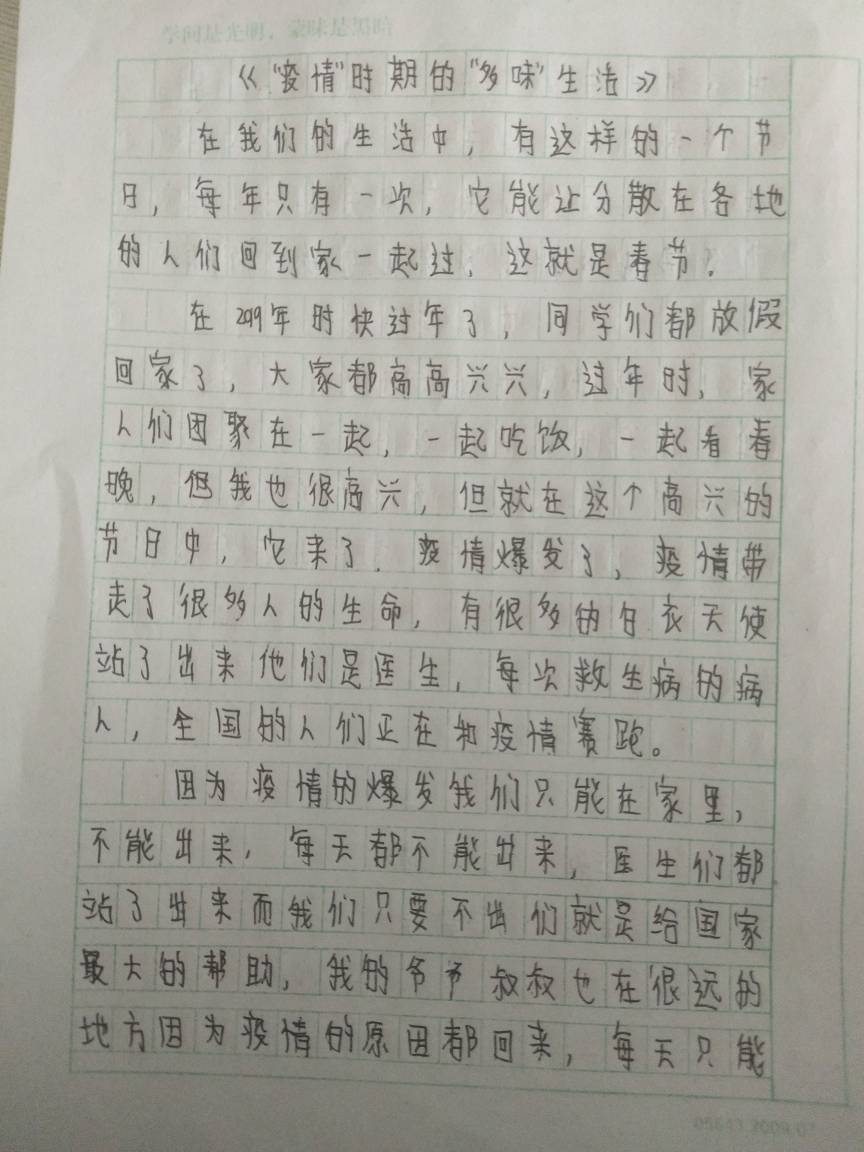 学问是光明，蒙昧是黑暗
《“疫情”时期的“多味”生活》
在我们的生活中，有这样的一个节
日，每年只有一次，它能让分散在各地
的人们回到家一起过，这就是春节．
在2019年时快过年了，同学们都放假
回家了，大家都高高兴兴，过年时，家
人们团聚在一起，一起吃饭，一起看春
晚，但我也很高兴，但就在这个高兴的
节日中，它来了．疫情爆发了，疫情带
走了很多人的生命，有很多的白衣天使
站了出来他们是医生，每次救生病的病
人，全国的人们正在和疫情赛跑。
因为疫情的爆发我们只能在家里，
不能出来，每天都不能出来，医生们都
站了出来而我们只要不出们就是给国家
最大的帮助，我的爷爷叔叔也在很远的
地方因为疫情的原因都回来，每天只能
05643.2009.07